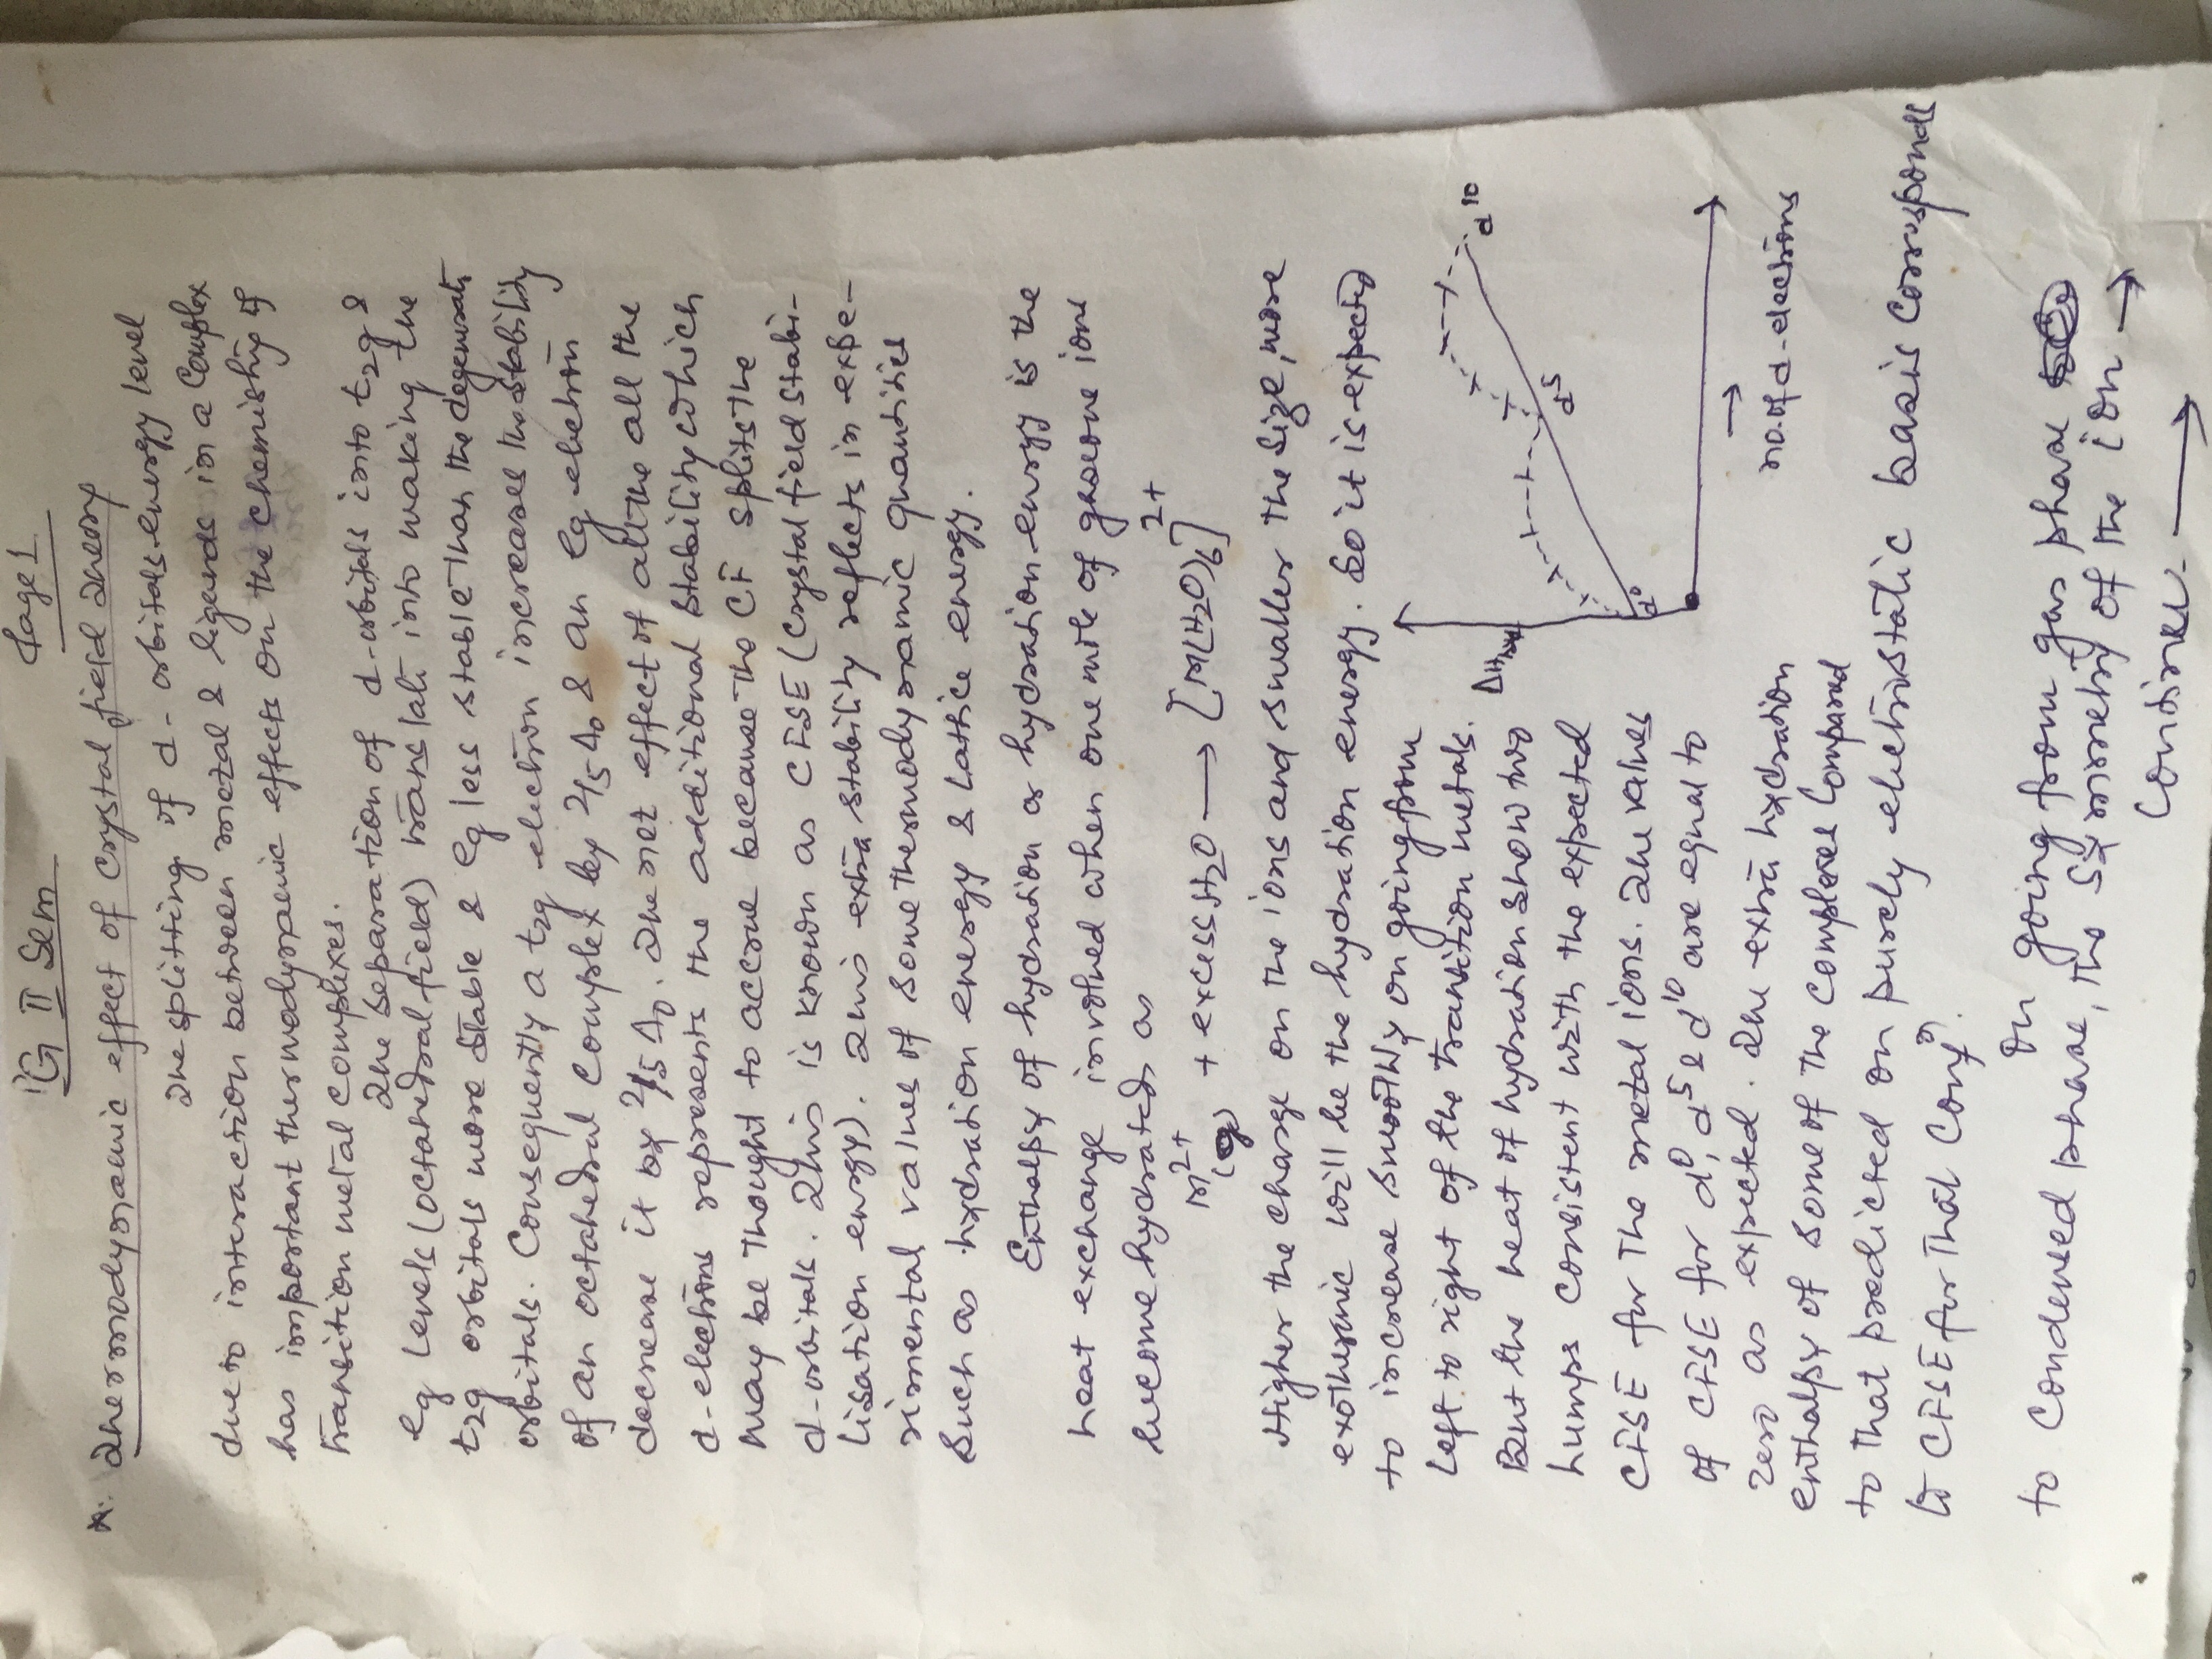 PG II Sem Page 1
*. Thermodynamic effect of crystal field Theory
The splitting of d-orbitals energy level
due to interaction between metal & ligands in a complex
has important thermodynamic effects on the chemistry of
transition metal complexes.
The separation of d-orbitals into t2g &
eg levels (octahedral field) translate into making the
t2g orbitals more stable & eg less stable than the degenerate
orbitals. Consequently a t2g electron increases the stability
of an octahedral complex by 2/5 Δo & an eg electron
decrease it by 2/5 Δo. The net effect of all the all the
d-electrons represents the additional stability which
may be thought to accrue because the CF splits the
d-orbitals. This is known as CFSE (Crystal field stabi-
lisation energy). This extra stability reflects in expe-
rimental values of some thermodynamic quantities
Such as hydration energy & Lattice energy.
Enthalpy of hydration or hydration energy is the
heat exchange involved when one mole of gaseous ions
become hydrated as
M2+ (g) + excess H2O → [M(H2O)6]2+
Higher the charge on the ions and smaller the size, more
exothermic will be the hydration energy. So it is expected
to increase smoothly on going from
left to right of the transition metals.
But the heat of hydration show two
humps consistent with the expected
CFSE for the metal ions. The values
of CFSE for d0, d5 & d10 are equal to
zero as expected. The extra hydration
enthalpy of some of the complexes compared
to that predicted on purely electrostatic basis corresponds
to CFSE for that confn.
ΔHhyd
d0
d5
d10
→
no. of d-electrons
On going from gas phase
to condensed phase, the symmetry of the ion →
Continue →